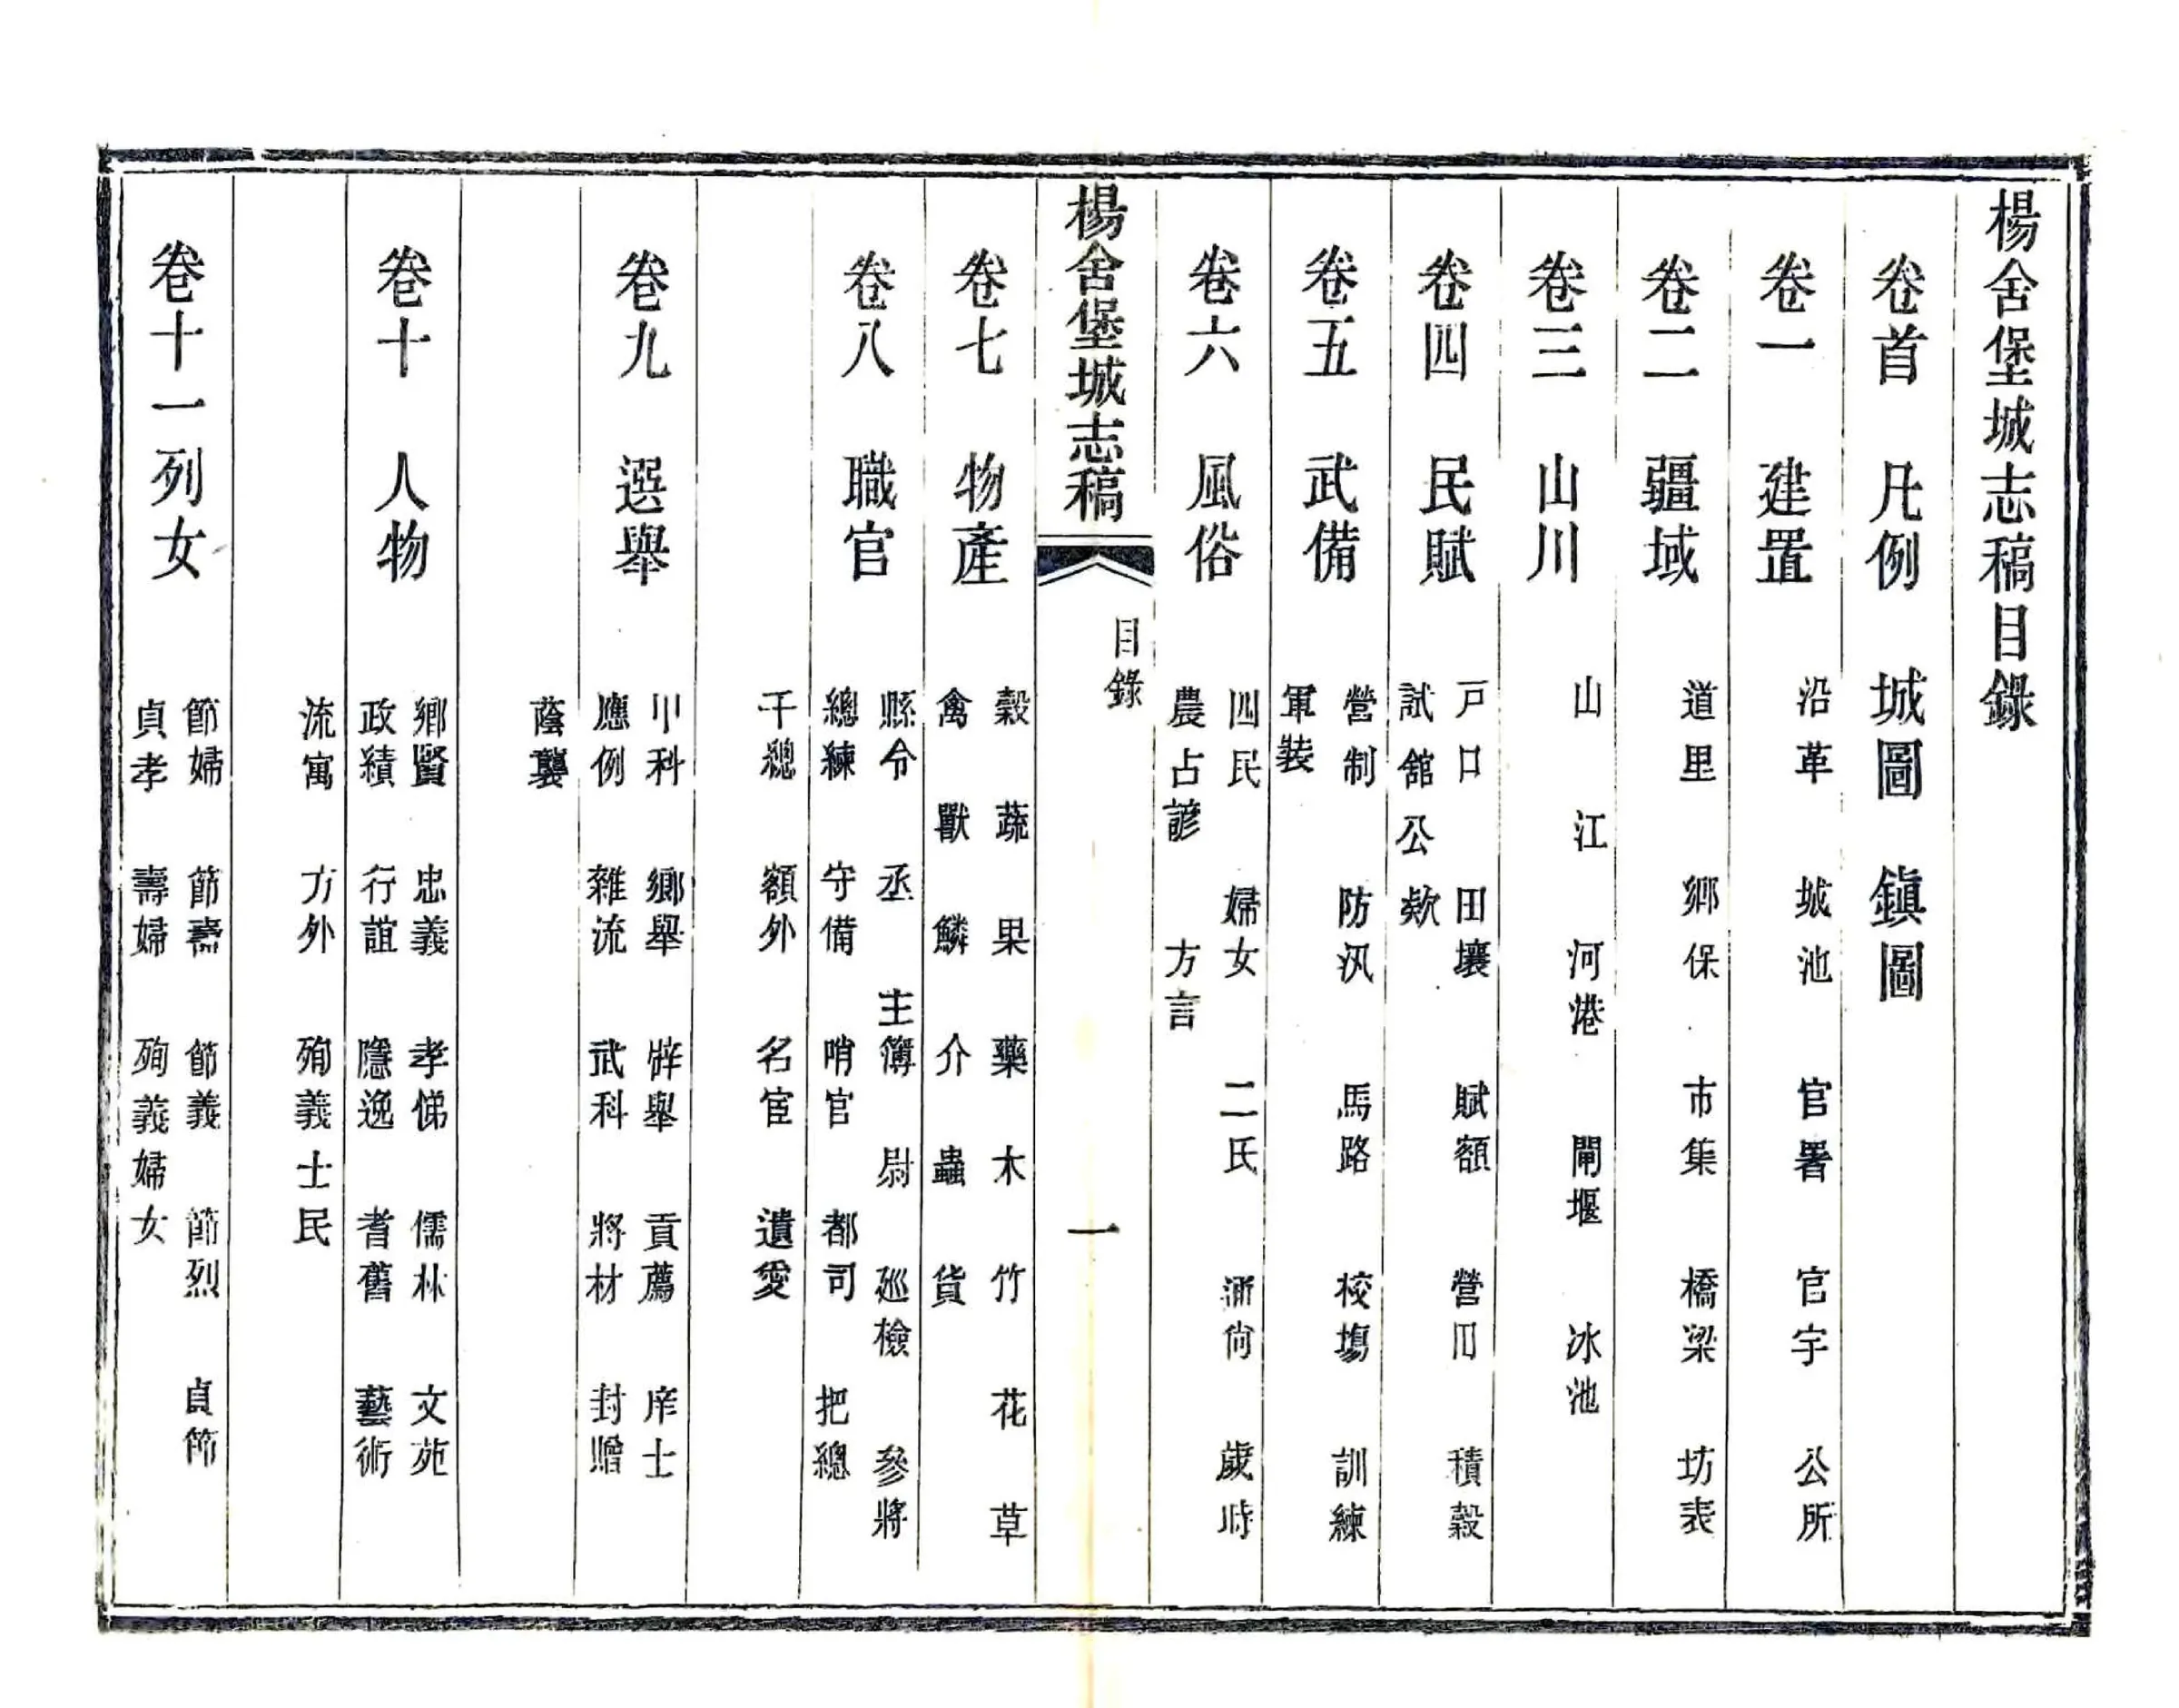 楊舍堡城志稿目錄
卷首 凡例 城圖 鎮圖
卷一 建置 沿革 城池 官署 官宇 公所
卷二 疆域 道里 鄉保 市集 橋梁 坊表
卷三 山川 山 江 河港 閘堰 冰池
卷四 民賦 戸口 田壤 賦額 營田 積穀
試舘公欵
卷五 武備 營制 防汛 馬路 校塲 訓練
軍裝
卷六 風俗 四民 婦女 二氏 歲時
農占諺 方言
楊舍堡城志稿
目錄
一
卷七 物產 穀 蔬 果 藥 木 竹 花 草
禽 獸 鱗 介 蟲 貨
卷八 職官 縣令 丞 主簿 尉 巡檢 參將
總練 守備 哨官 都司 把總
千總 額外 名宦 遺愛
卷九 選舉 甲科 鄉舉 辟舉 貢薦 庠士
應例 雜流 武科 將材 封贈
蔭襲
卷十 人物 鄉賢 忠義 孝悌 儒林 文苑
政績 行誼 隱逸 耆舊 藝術
流寓 方外 殉義士民
卷十一 列女 節婦 節壽 節義 節烈 貞節
貞孝 壽婦 殉義婦女